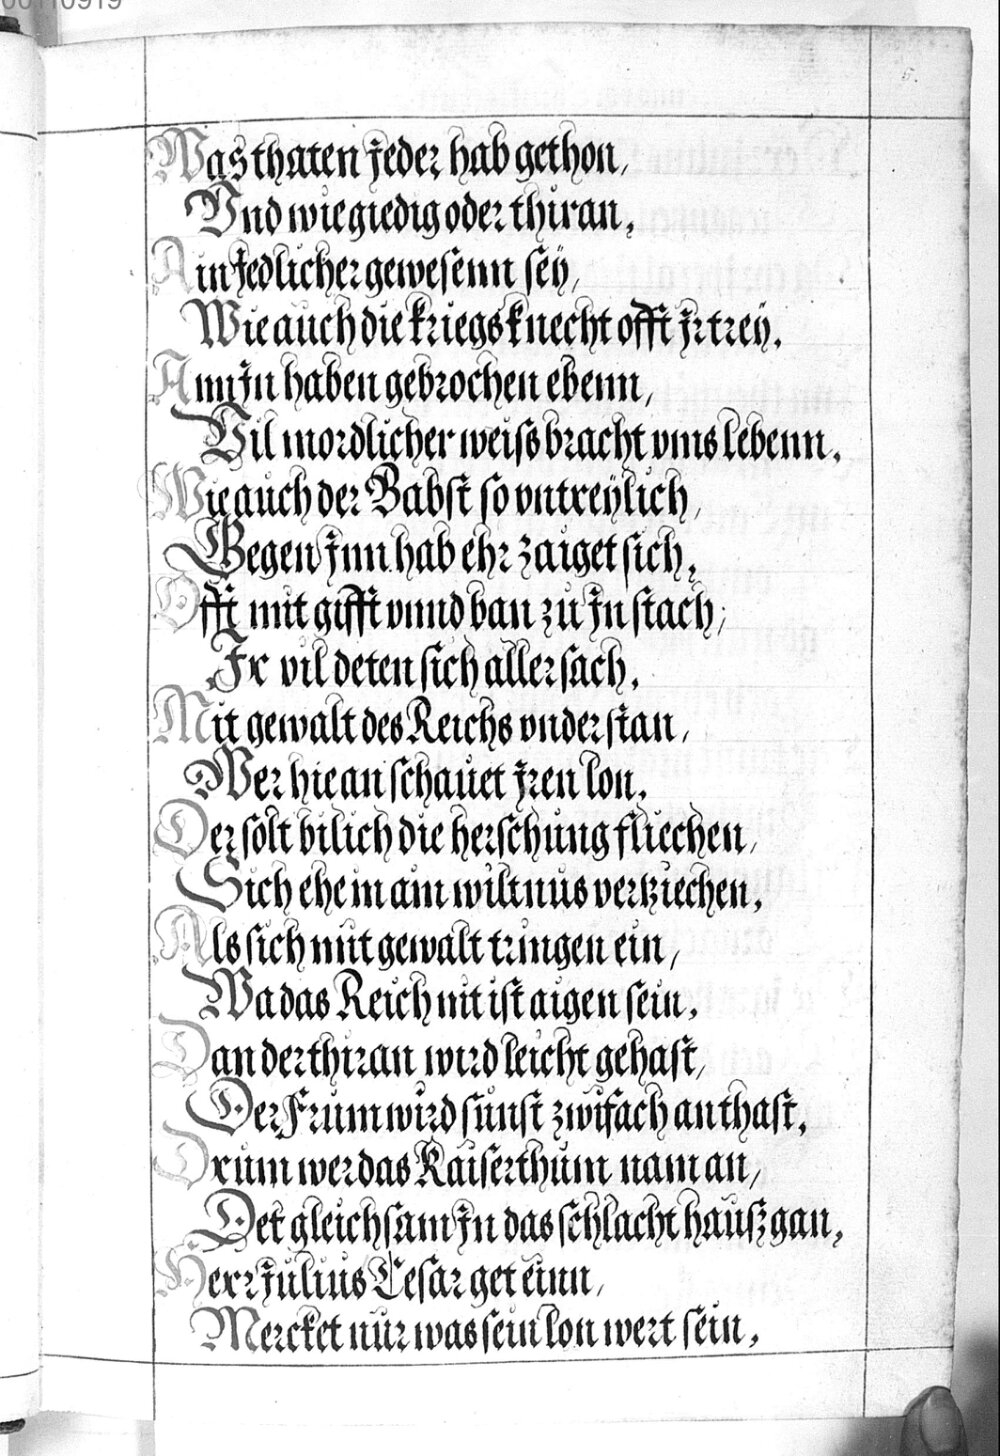 00110919
5.
Was thaten Jeder hab gethon,
Vnd wie giedig oder thiran,
Ain Jedlicher gewesenn seÿ,
Wie auch die kriegsknecht offt Jr treÿ.
Ann Jn haben gebrochen ebenn,
Vil mordlicher weiß bracht vms lebenn.
Wie auch der Babst so vntreÿlich,
Gegen Jnn hab ehr zaiget sich,
Offt mit gifft vnnd ban zu Jn stach,
Jr vil deten sich aller sach,
Mit gewalt des Reichs vnderstan,
Wer hie anschauet Jren lon.
Der solt bilich die herschung fliechen,
Sich ehe in ain wiltnus verkriechen,
Als sich mit gewalt tringen ein,
Wa das Reich nit ist aigen sein,
Dan der thiran wird leicht gehast,
Der Frum wird sunst zwifach anthast,
Drum wer das Kaiserthum nam an,
Det gleichsam Jn das schlachthauß gan,
Herr Julius Cesar get einn,
Mercket nur was sein lon wert sein,